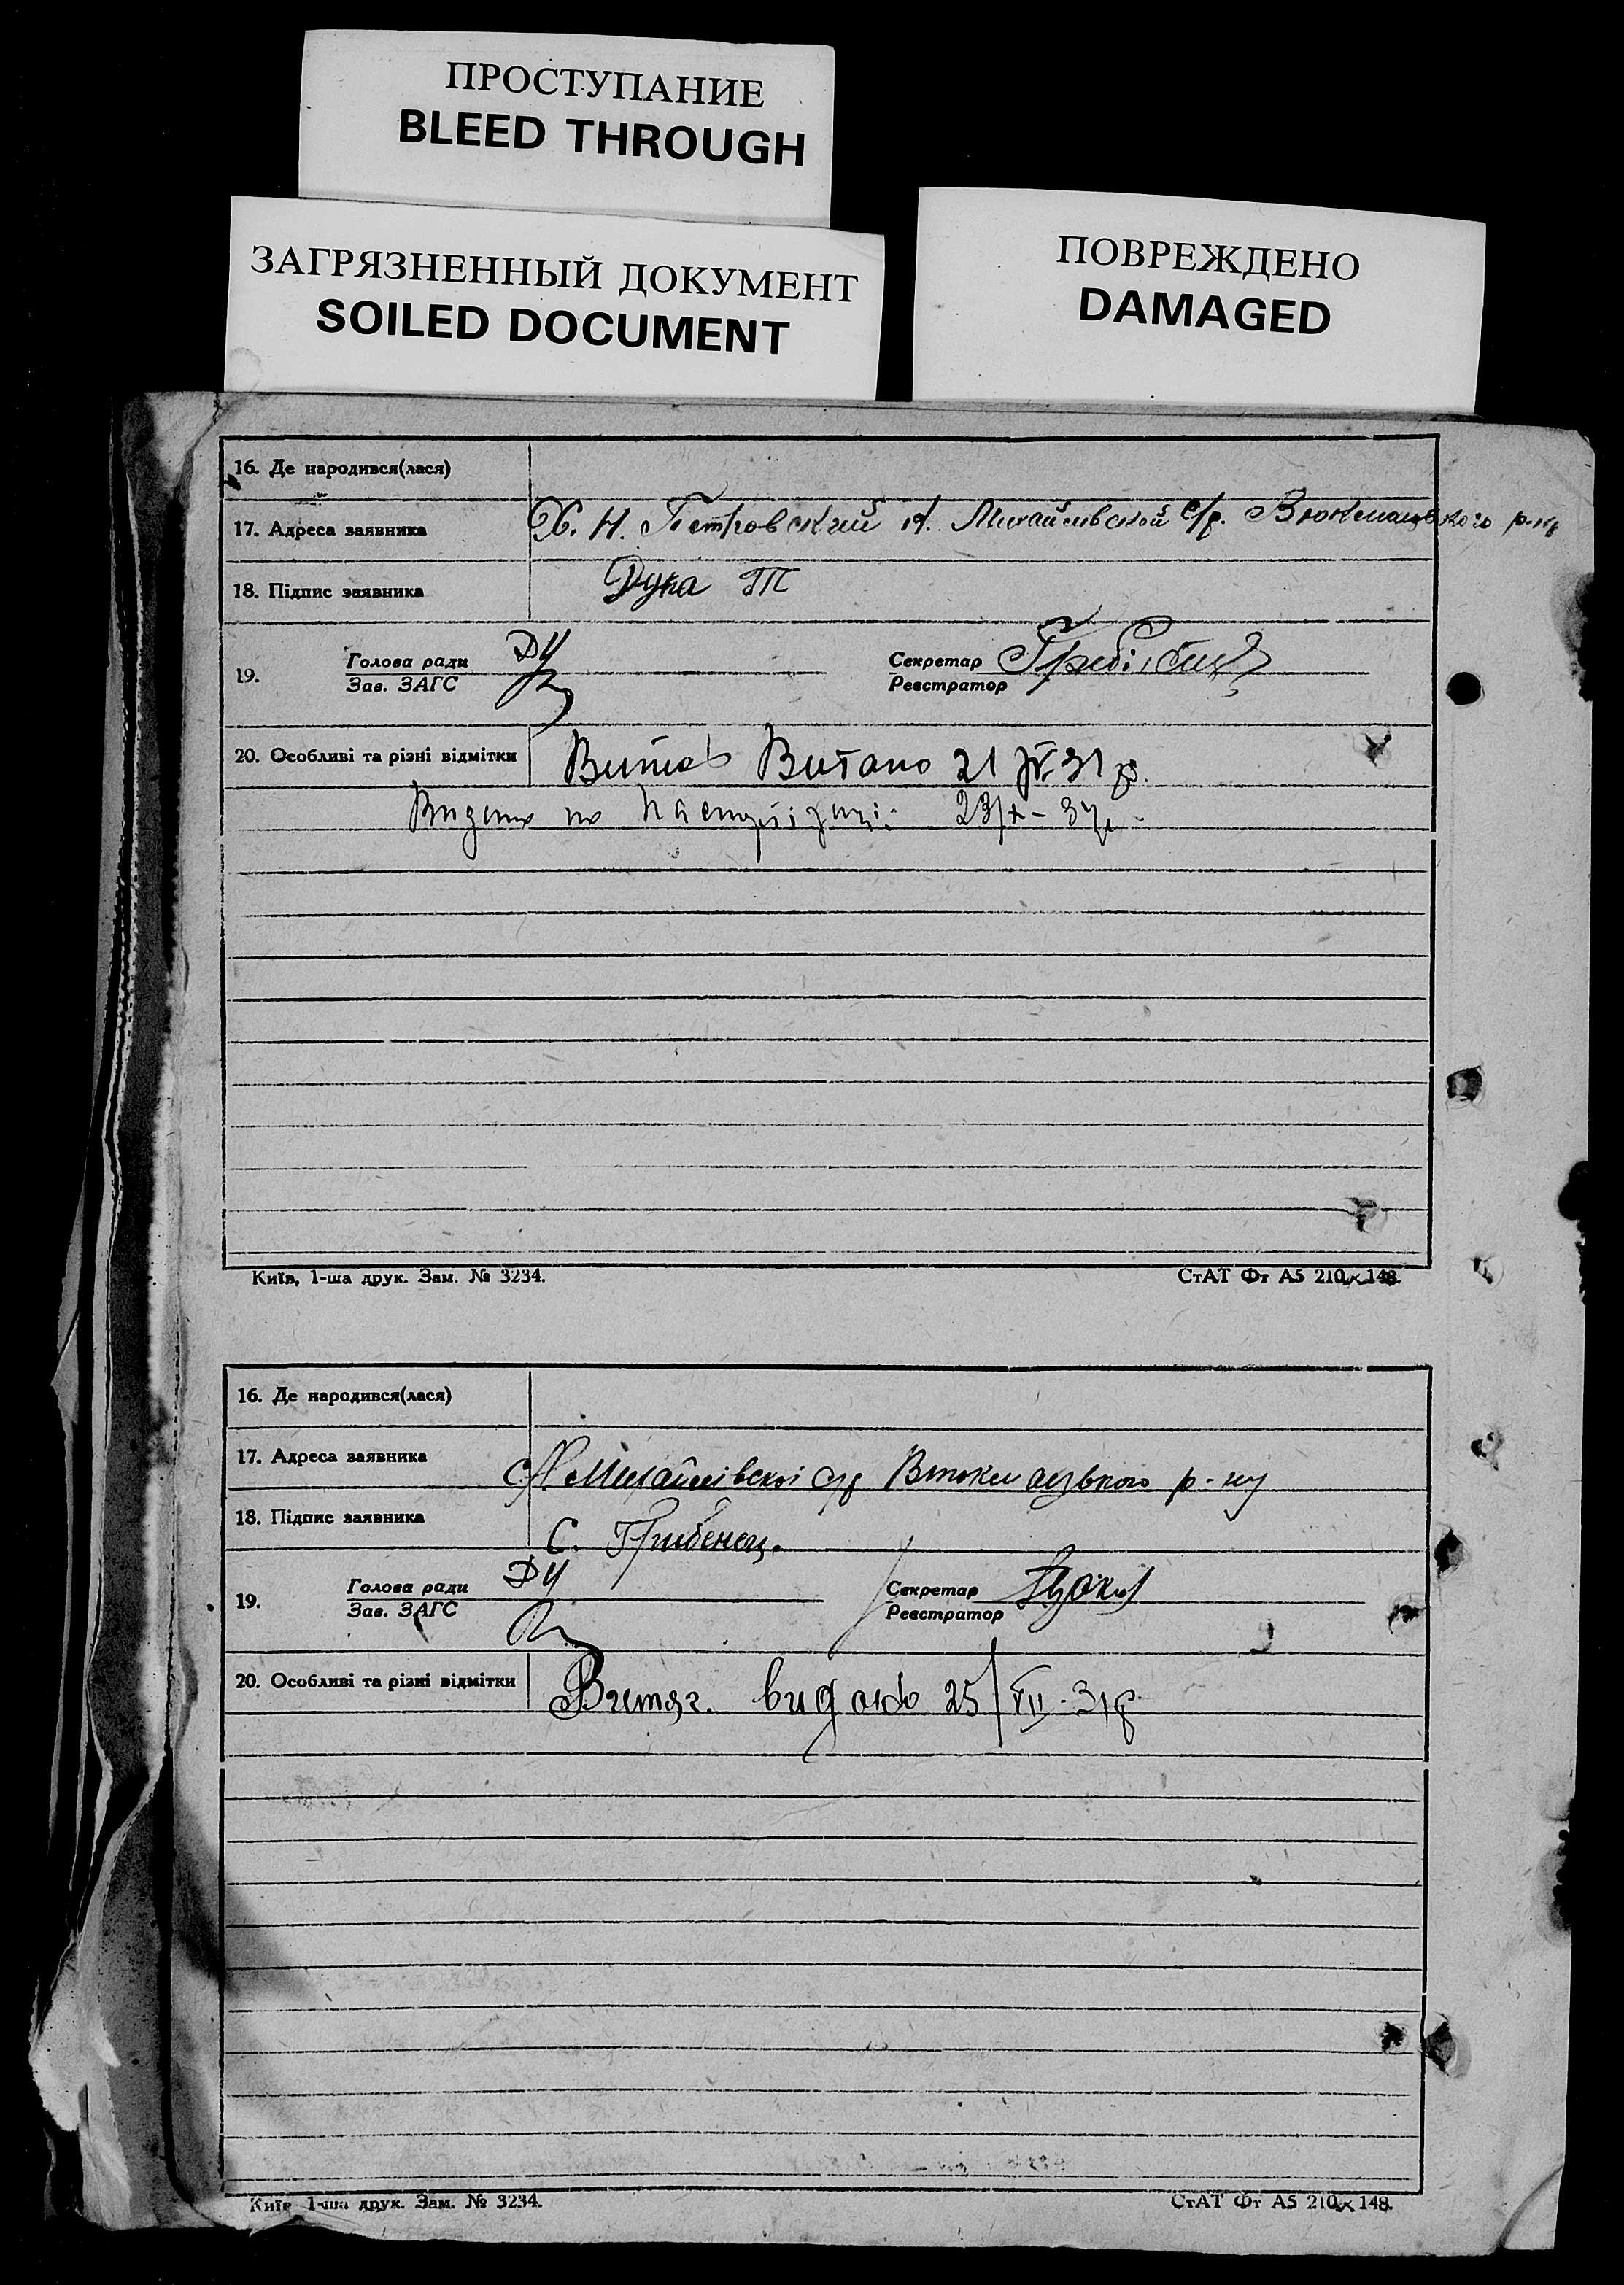 ПРОСТУПАНИЕ
BLEED THROUGH
ЗАГРЯЗНЕННЫЙ ДОКУМЕНТ
SOILED DOCUMENT
ПОВРЕЖДЕНО
DAMAGED
16. Де народився(лася)
17. Адреса заявника Х. Н. Петровский Н. Михайлівской с/р. р-ну
18. Підпис заявника Дука Т
19. Голова ради Секретар
Зав. ЗАГС Реєстратор
20. Особливі та різні відмітки Витяг 21 IV 31 р.
Видано по паспортізаціі 23/X-
Київ, 1-ша друк. Зам. № 3234. СтАТ Фт А5 210×148.
16. Де народився(лася)
17. Адреса заявника Михайлівскоі с/р Втокмацького р-ну
18. Підпис заявника С. Грибенец.
19. Голова ради Секретар
Зав. ЗАГС Реєстратор
20. Особливі та різні відмітки Витяг. видано 25/VII-31р.
Київ 1-ша друк. Зам. № 3234. СтАТ Фт А5 210×148.